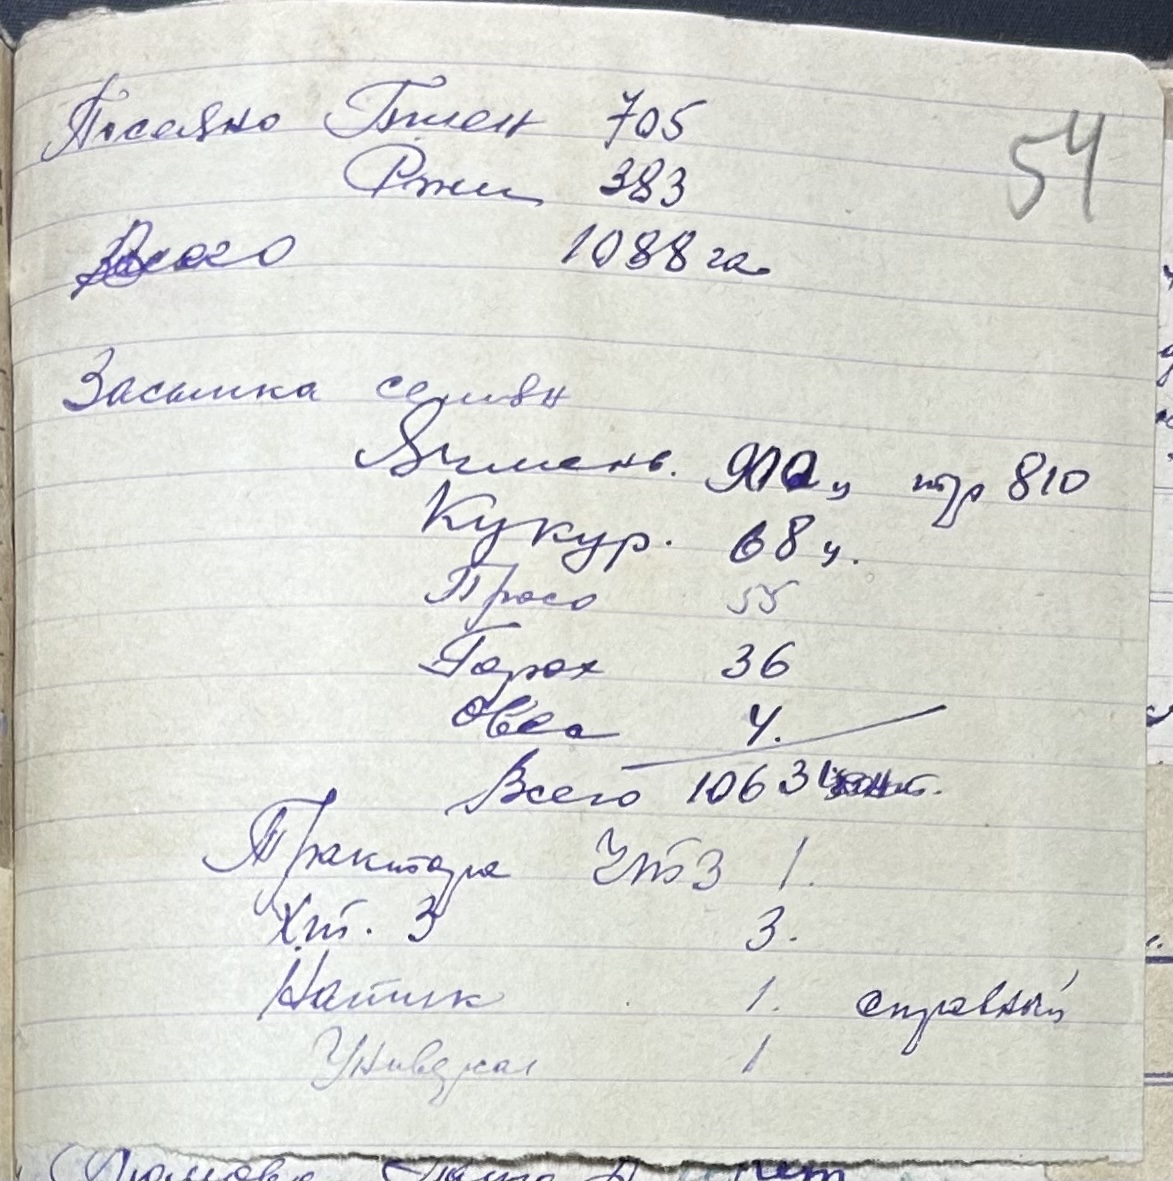 Посеяно Пшен 705
54
Ржи 383
Всего 1088 га.
Засыпка семян
Ячмень. 900 ц 810
Кукур. 68 ц.
Просо 55
Горох 36
Овса 4.
Всего 1063 цент.
Трактора ЧТЗ 1.
Хт. З 3.
Натик 1. справный
Универсал 1